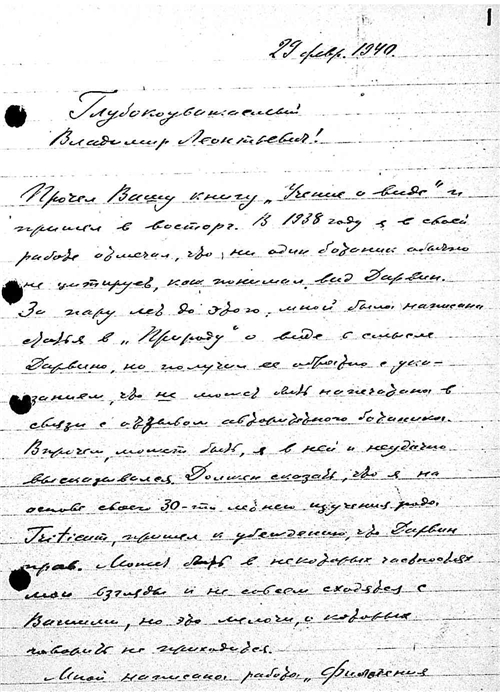 1
29 февр. 1940.
Глубокоуважаемый
Владимир Леонтьевич!
Прочел Вашу книгу „Учение о виде" и
пришел в восторг. В 1938 году я в своей
работе отмечал, что ни один ботаник обычно
не цитирует, как понимал вид Дарвин.
За пару лет до этого, мной была написана
статья в „Природу" о виде в смысле
Дарвина, но получил ее обратно с ука-
занием, что не может быть напечатана в
связи с отзывом авторитетного ботаника.
Впрочем, может быть, я в ней и неудачно
высказывался. Должен сказать, что я на
основе своего 30-ти летнего изучения рода
Triticum, пришел к убеждению, что Дарвин
прав. Может быть в некоторых частностях
мои взгляды и не совсем сходятся с
Вашими, но это мелочи, о которых
говорить не приходится.
Мной написана работа „Филогения